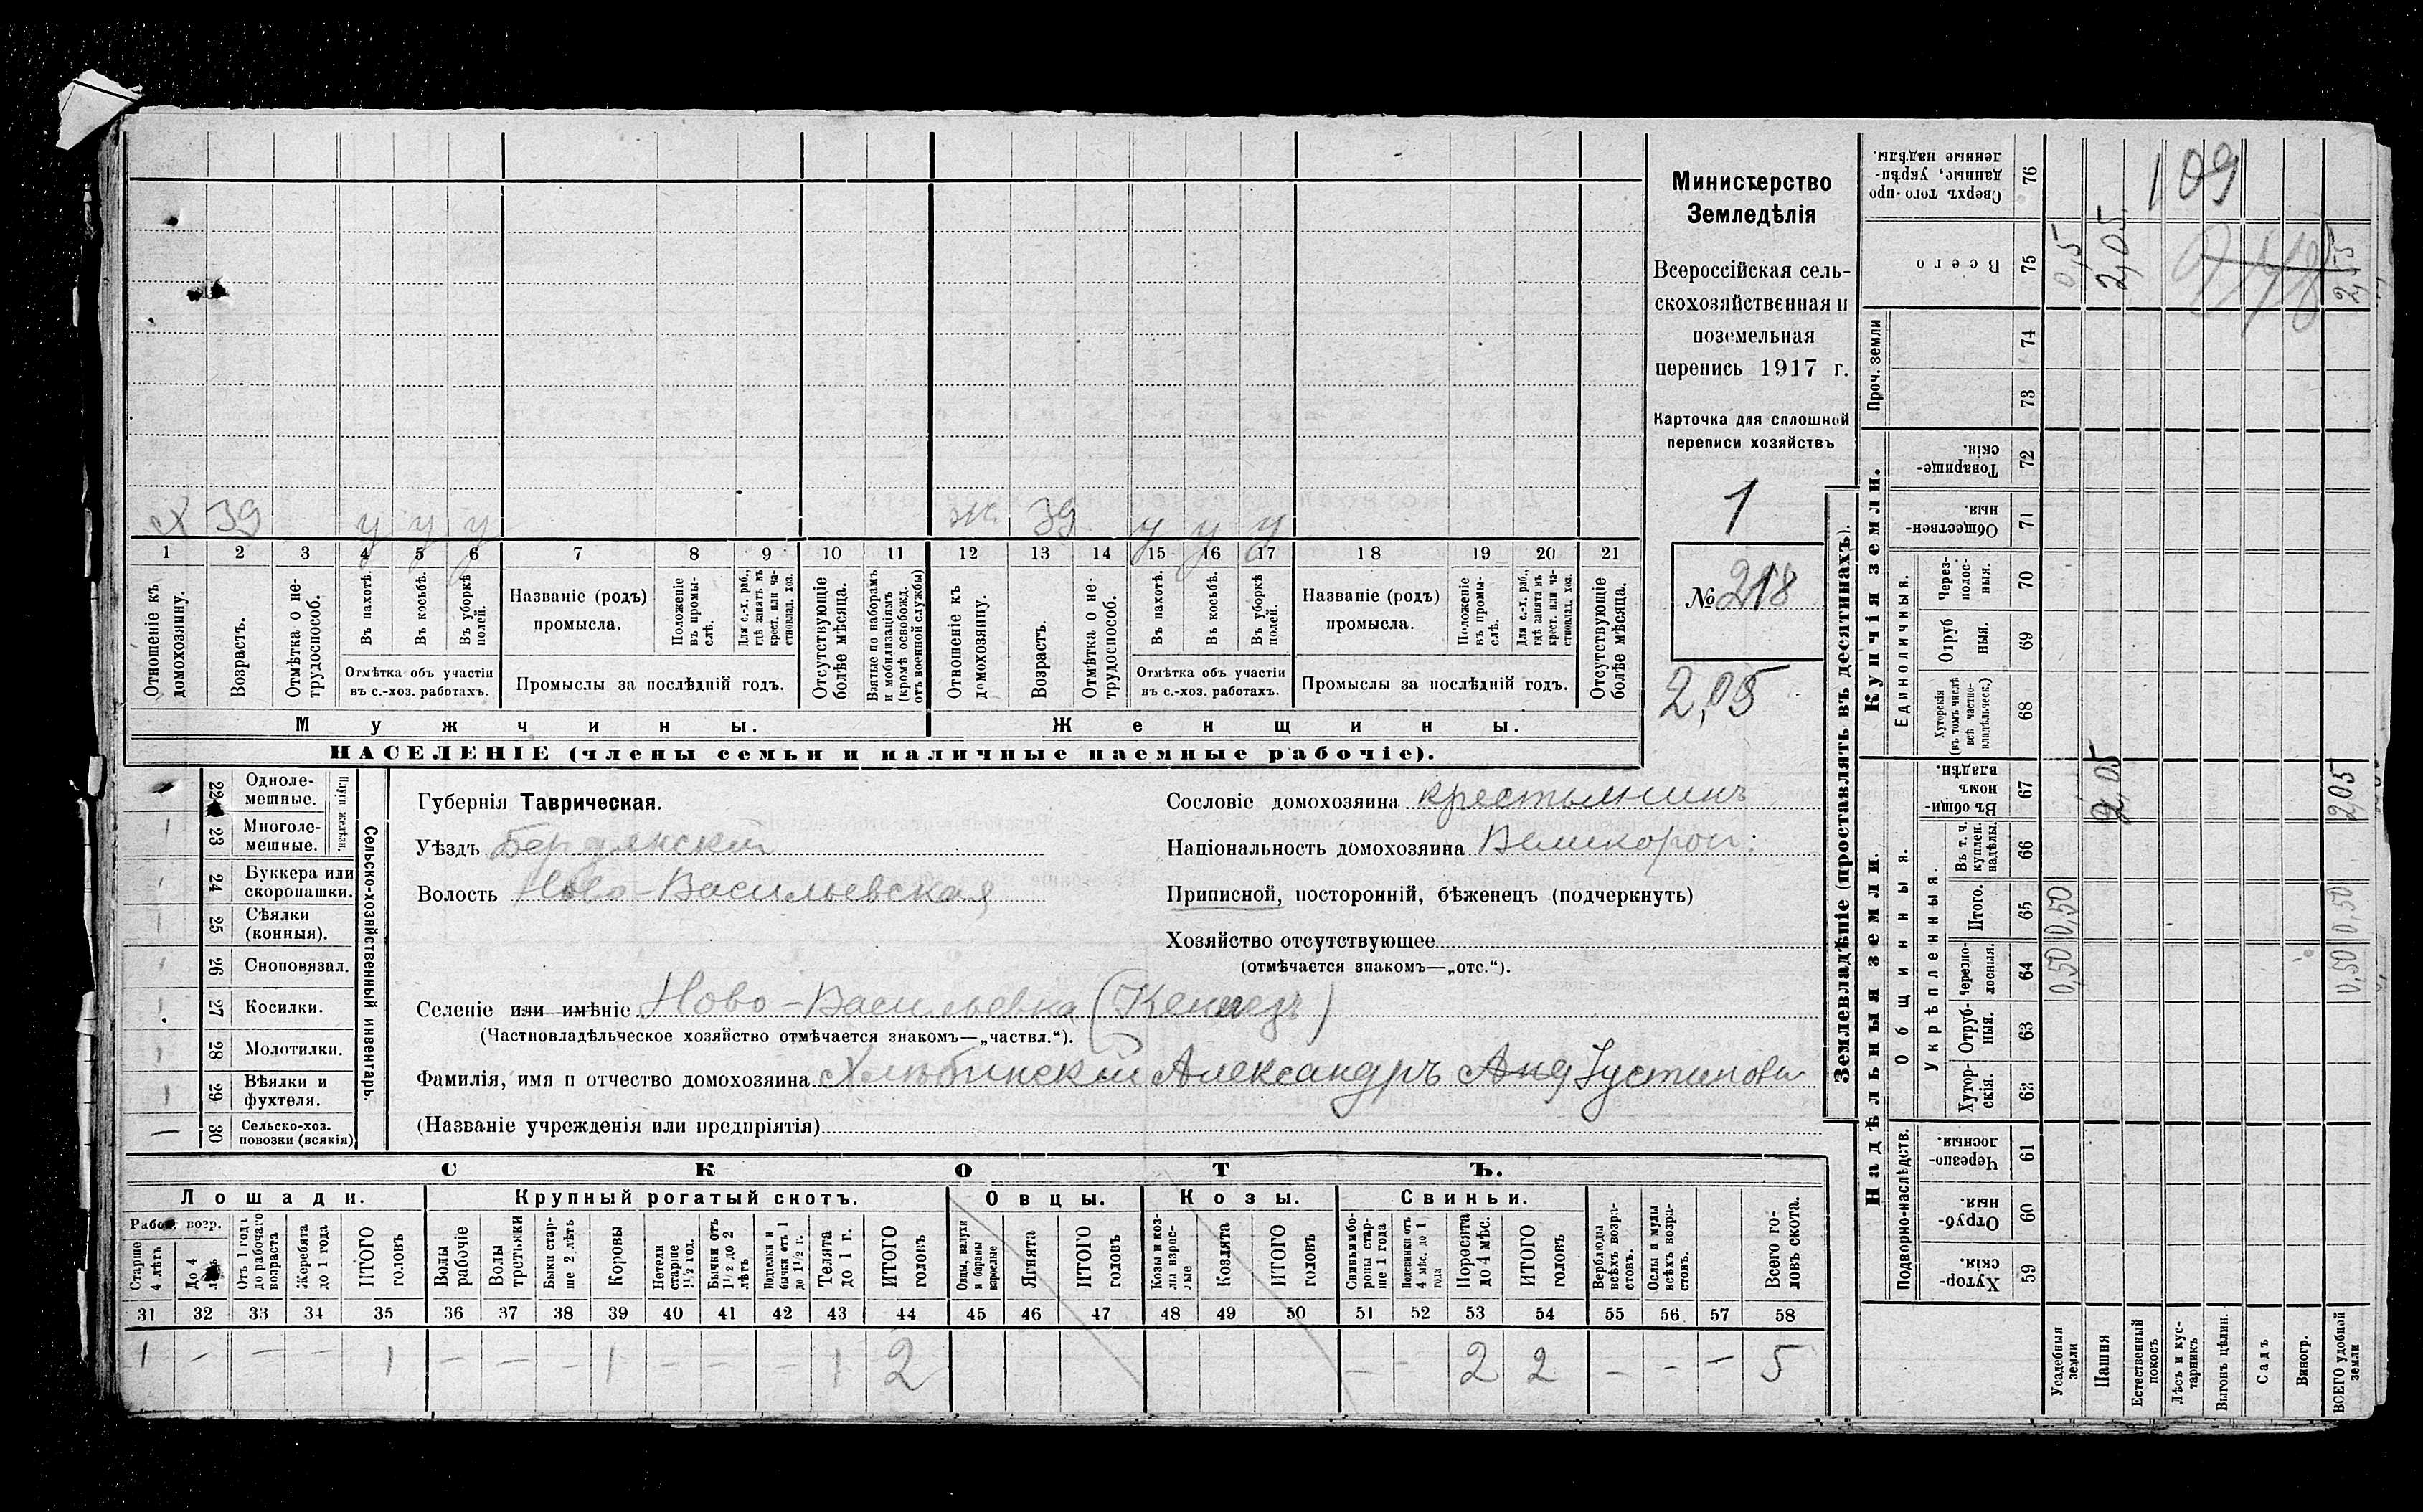 Министерство
Земледѣлія
Всероссійская сель-
скохозяйственная и
поземельная
перепись 1917 г.
Карточка для сплошной
переписи хозяйствъ
1
№ 218
2,05
Х 39 у у у ж. 39 у у у
1 2 3 4 5 6 7 8 9 10 11 12 13 14 15 16 17 18 19 20 21
Отношеніе къ домохозяину.
Возрастъ.
Отмѣтка о не-трудоспособ.
Въ пахотѣ.
Въ косьбѣ.
Въ уборкѣ полей.
Отмѣтка объ участіи въ с.-хоз. работахъ.
Названіе (родъ) промысла.
Положеніе въ промы-слѣ.
Для с.-х. раб., гдѣ занятъ въ крест. или ча-стновлад. хоз.
Промыслы за послѣдній годъ.
Отсутствующіе болѣе мѣсяца.
Взятые по наборамъ и мобилизаціямъ (кромѣ освобожд. отъ военной службы)
Отношеніе къ домохозяину.
Возрастъ.
Отмѣтка о не-трудоспособ.
Въ пахотѣ.
Въ косьбѣ.
Въ уборкѣ полей.
Отмѣтка объ участіи въ с.-хоз. работахъ.
Названіе (родъ) промысла.
Положеніе въ промы-слѣ.
Для с.-х. раб., гдѣ занята въ крест. или ча-стновлад. хоз.
Промыслы за послѣдній годъ.
Отсутствующіе болѣе мѣсяца.
Мужчины. Женщины.
НАСЕЛЕНІЕ (члены семьи и наличные наемные рабочіе).
22 Одноле-мешные.
23 Многоле-мешные.
Плуги желѣзн.
24 Буккера или скоропашки.
25 Сѣялки (конныя).
26 Сноповязал.
27 Косилки.
28 Молотилки.
29 Вѣялки и фухтеля.
30 Сельско-хоз. повозки (всякія)
Сельско-хозяйственный инвентарь.
Губернія Таврическая.
Уѣздъ Бердянскій
Волость Ново-Васильевская
Сословіе домохозяина крестьянинъ
Національность домохозяина Великорос:
Приписной, посторонній, бѣженецъ (подчеркнуть)
Хозяйство отсутствующее
(отмѣчается знакомъ—„отс.“).
Селеніе или имѣніе Ново-Васильевка
(Частновладѣльческое хозяйство отмѣчается знакомъ—„частвл.“).
Фамилія, имя и отчество домохозяина Александръ Анд
(Названіе учрежденія или предпріятія)
СКОТЪ.
Лошади. Крупный рогатый скотъ. Овцы. Козы. Свиньи.
Рабоч. возр.
Старше 4 лѣтъ
До 4 лѣтъ
Отъ 1 года до рабочаго возраста
Жеребята до 1 года
ИТОГО головъ
Волы рабочіе
Волы третьяки
Быки стар-ше 2 лѣтъ
Коровы
Нетели старше 1½ год.
Бычки отъ 1½ до 2 лѣтъ
Телки и бычки отъ 1 до 1½ г.
Телята до 1 г.
ИТОГО головъ
Овцы, валухи и бараны взрослые
Ягнята
ИТОГО головъ
Козы и коз-лы взрос-лые
Козлята
ИТОГО головъ
Свиньи и бо-ровы стар-ше 1 года
Подсвинки отъ 4 мѣс. до 1 года
Поросята до 4 мѣс.
ИТОГО головъ
Верблюды всѣхъ возра-стовъ.
Ослы и мулы всѣхъ возра-стовъ.
Всего го-ловъ скота.
31 32 33 34 35 36 37 38 39 40 41 42 43 44 45 46 47 48 49 50 51 52 53 54 55 56 57 58
1 – – – 1 – – – 1 – – – 1 2 – – 2 2 – – – 5
Землевладѣніе (проставлять въ десятинахъ).
Надѣльныя земли. Купчія земли. Проч. земли
Подворно-наслѣдств.
Общинныя.
Укрѣпленныя.
Единоличныя.
76 Сверхъ того про-данные, укрѣп-ленные надѣлы.
75 Всего
74
73
72 Товарище-скія.
71 Обществен-ныя.
70 Через-полос-ныя.
69 Отруб ныя.
68 Хуторскія (въ томъ числѣ всѣ частно-владѣльческ.)
67 Въ общи-номъ владѣн.
66 Въ т. ч. куплен. надѣлы.
65 Итого.
64 Черезпо-лосныя.
63 Отруб-ныя.
62 Хутор-скія.
61 Черезпо-лосныя.
60 Отруб-ныя.
59 Хутор-скія.
Усадебныя земли
Пашня
Естественный покосъ
Лѣсъ и кус-тарникъ
Выгонъ цѣлин.
Садъ
Виногр.
ВСЕГО удобной земли
109
0,5 2,05 2,55
2,05 2,05
0,50 0,50
0,50 0,50